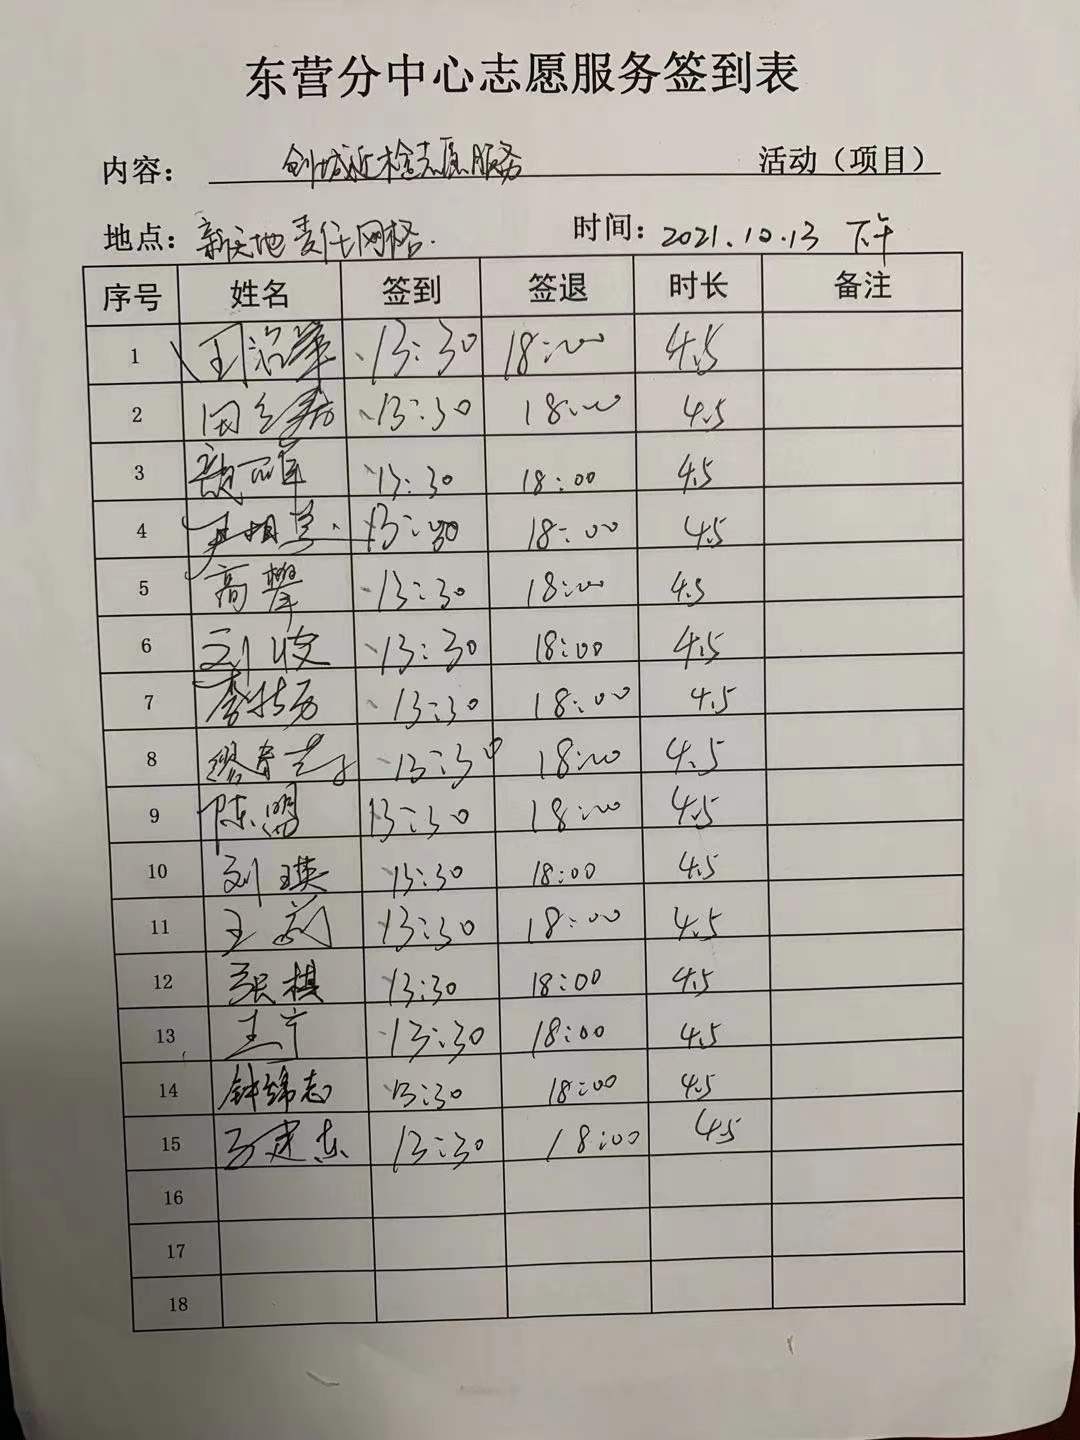 东营分中心志愿服务签到表
内容： 创城 检志愿服务 活动（项目）
地点：新天地责任网格. 时间：2021.10.13 下午
序号 姓名 签到 签退 时长 备注
1 13:30 18:00 4.5
2 13:30 18:00 4.5
3 13:30 18:00 4.5
4 13:30 18:00 4.5
5 高攀 13:30 18:00 4.5
6 刘 13:30 18:00 4.5
7 13:30 18:00 4.5
8 13:30 18:00 4.5
9 陈 13:30 18:00 4.5
10 刘瑛 13:30 18:00 4.5
11 王 13:30 18:00 4.5
12 张棋 13:30 18:00 4.5
13 王宁 13:30 18:00 4.5
14 钟 志 13:30 18:00 4.5
15 13:30 18:00 4.5
16
17
18